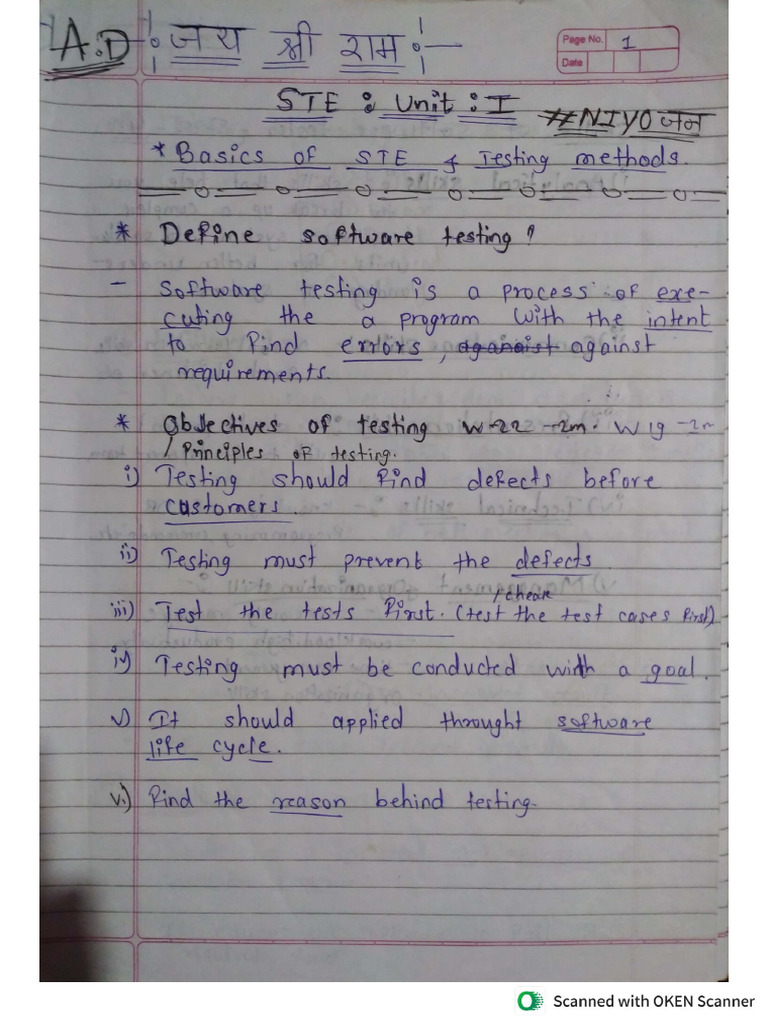 A.D जय श्री राम
Page No. 1
Date
STE : Unit : I
#NIYOजन
* Basics of STE & Testing methods.
* Define software testing?
- Software testing is a process of exe-
cuting the a program with the intent
to find errors, aganaist against
requirements.
* Objectives of testing W-22 -2m. W 19 -2m
/ Principles of testing.
i) Testing should find defects before
customers
ii) Testing must prevent the defects.
/cheak
iii) Test the tests first. (test the test cases first)
iv) Testing must be conducted with a goal.
v) It should applied throught software
life cycle.
v.) Find the reason behind testing.
Scanned with OKEN Scanner